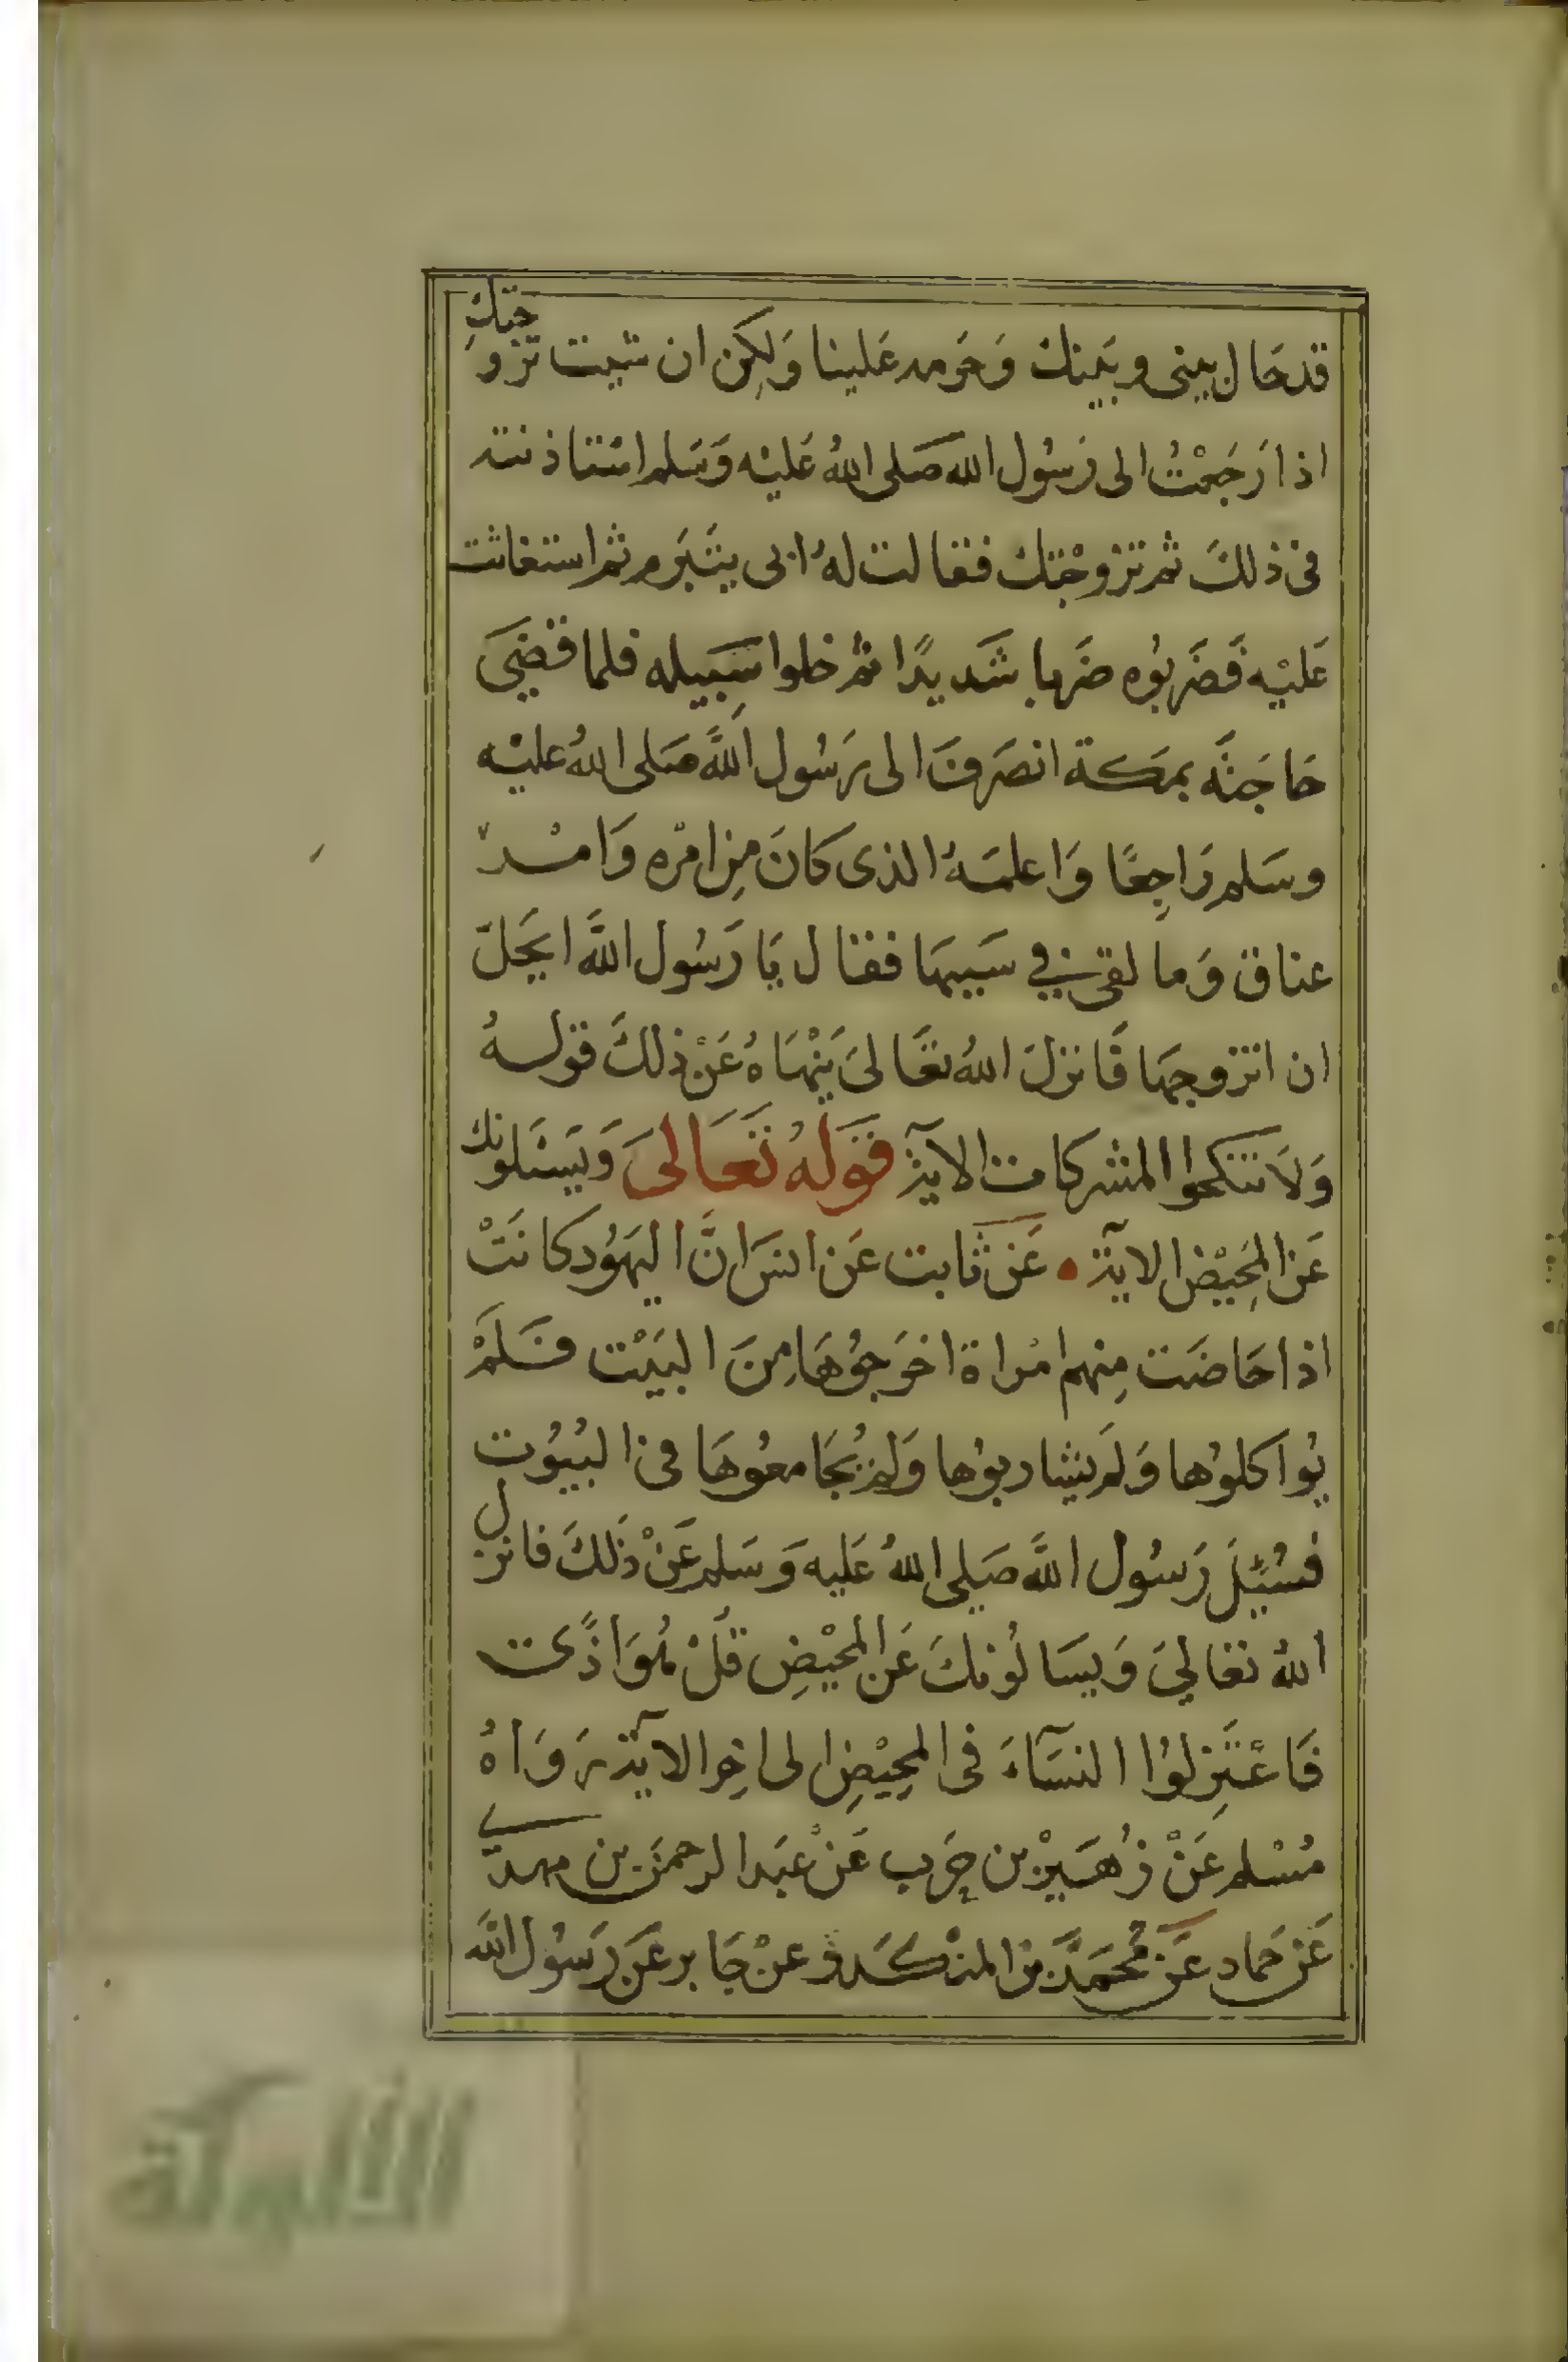 قد حَال بيني وبَينك وَحَرمه عَلينا وَلكِن ان شيت تزوجتكِ
اذا رَجَعْتُ الى رَسُول الله صَلى اللهُ عَليْه وَسَلم استاذنته
في ذلكَ ثم تزوجْتك فقالت لهُ ابى يتبَرم ثم استغاثت
عَليْه فَضَربُوه ضَربا شَديدًا ثم خلوا سَبِيله فلما قضيَ
حَاجَتَه بمكة انصَرفَ الى رَسُول اللَّه صَلى اللهُ عليْه
وسَلم رَاجِعًا وَاعلمَهُ الذى كانَ مِن امْره وَامْر
عناق وَما لقى في سَبيها فقال يَا رَسُول اللَّه ايحلّ
ان اتزوجها فَانزلَ اللهُ تعَالىَ يَنْهَاهُ عَنْ ذلكَ قولهُ
وَلَا تنكحوا المشركات الآيَة قَولُهُ تَعَالىَ وَيَسْئلونك
عَن المَحِيْض الآيَة • عَن ثابت عَن انسَ انَّ اليَهُود كانَتْ
اذا حَاضَت مِنهم امْراة اخرَجُوْهَا مِنَ البَيْت فَلَمْ
يُواكلوُها وَلم يشاربوُها وَلم يُجَامعُوهَا في البُيُوت
فسُئِلَ رَسُول اللَّه صَلى اللهُ عَليه وَسَلم عَنْ ذَلكَ فانزل
اللهُ تعَاليَ وَيسَالُونكَ عَن المَحيْضِ قُلْ هُوَ اذًى
فَاعْتَزِلوُا النسَآءَ فى المَحِيْضِ الى اخِر الآيَة رَوَاهُ
مُسْلم عَنْ زُهَيْر بن حَرب عَنْ عَبد الرحمن بن مهدي
عَن حَماد عَن مُحَمَّد بن المنْكَدر عنْ جَابر عَن رَسُول الله
الألوكة